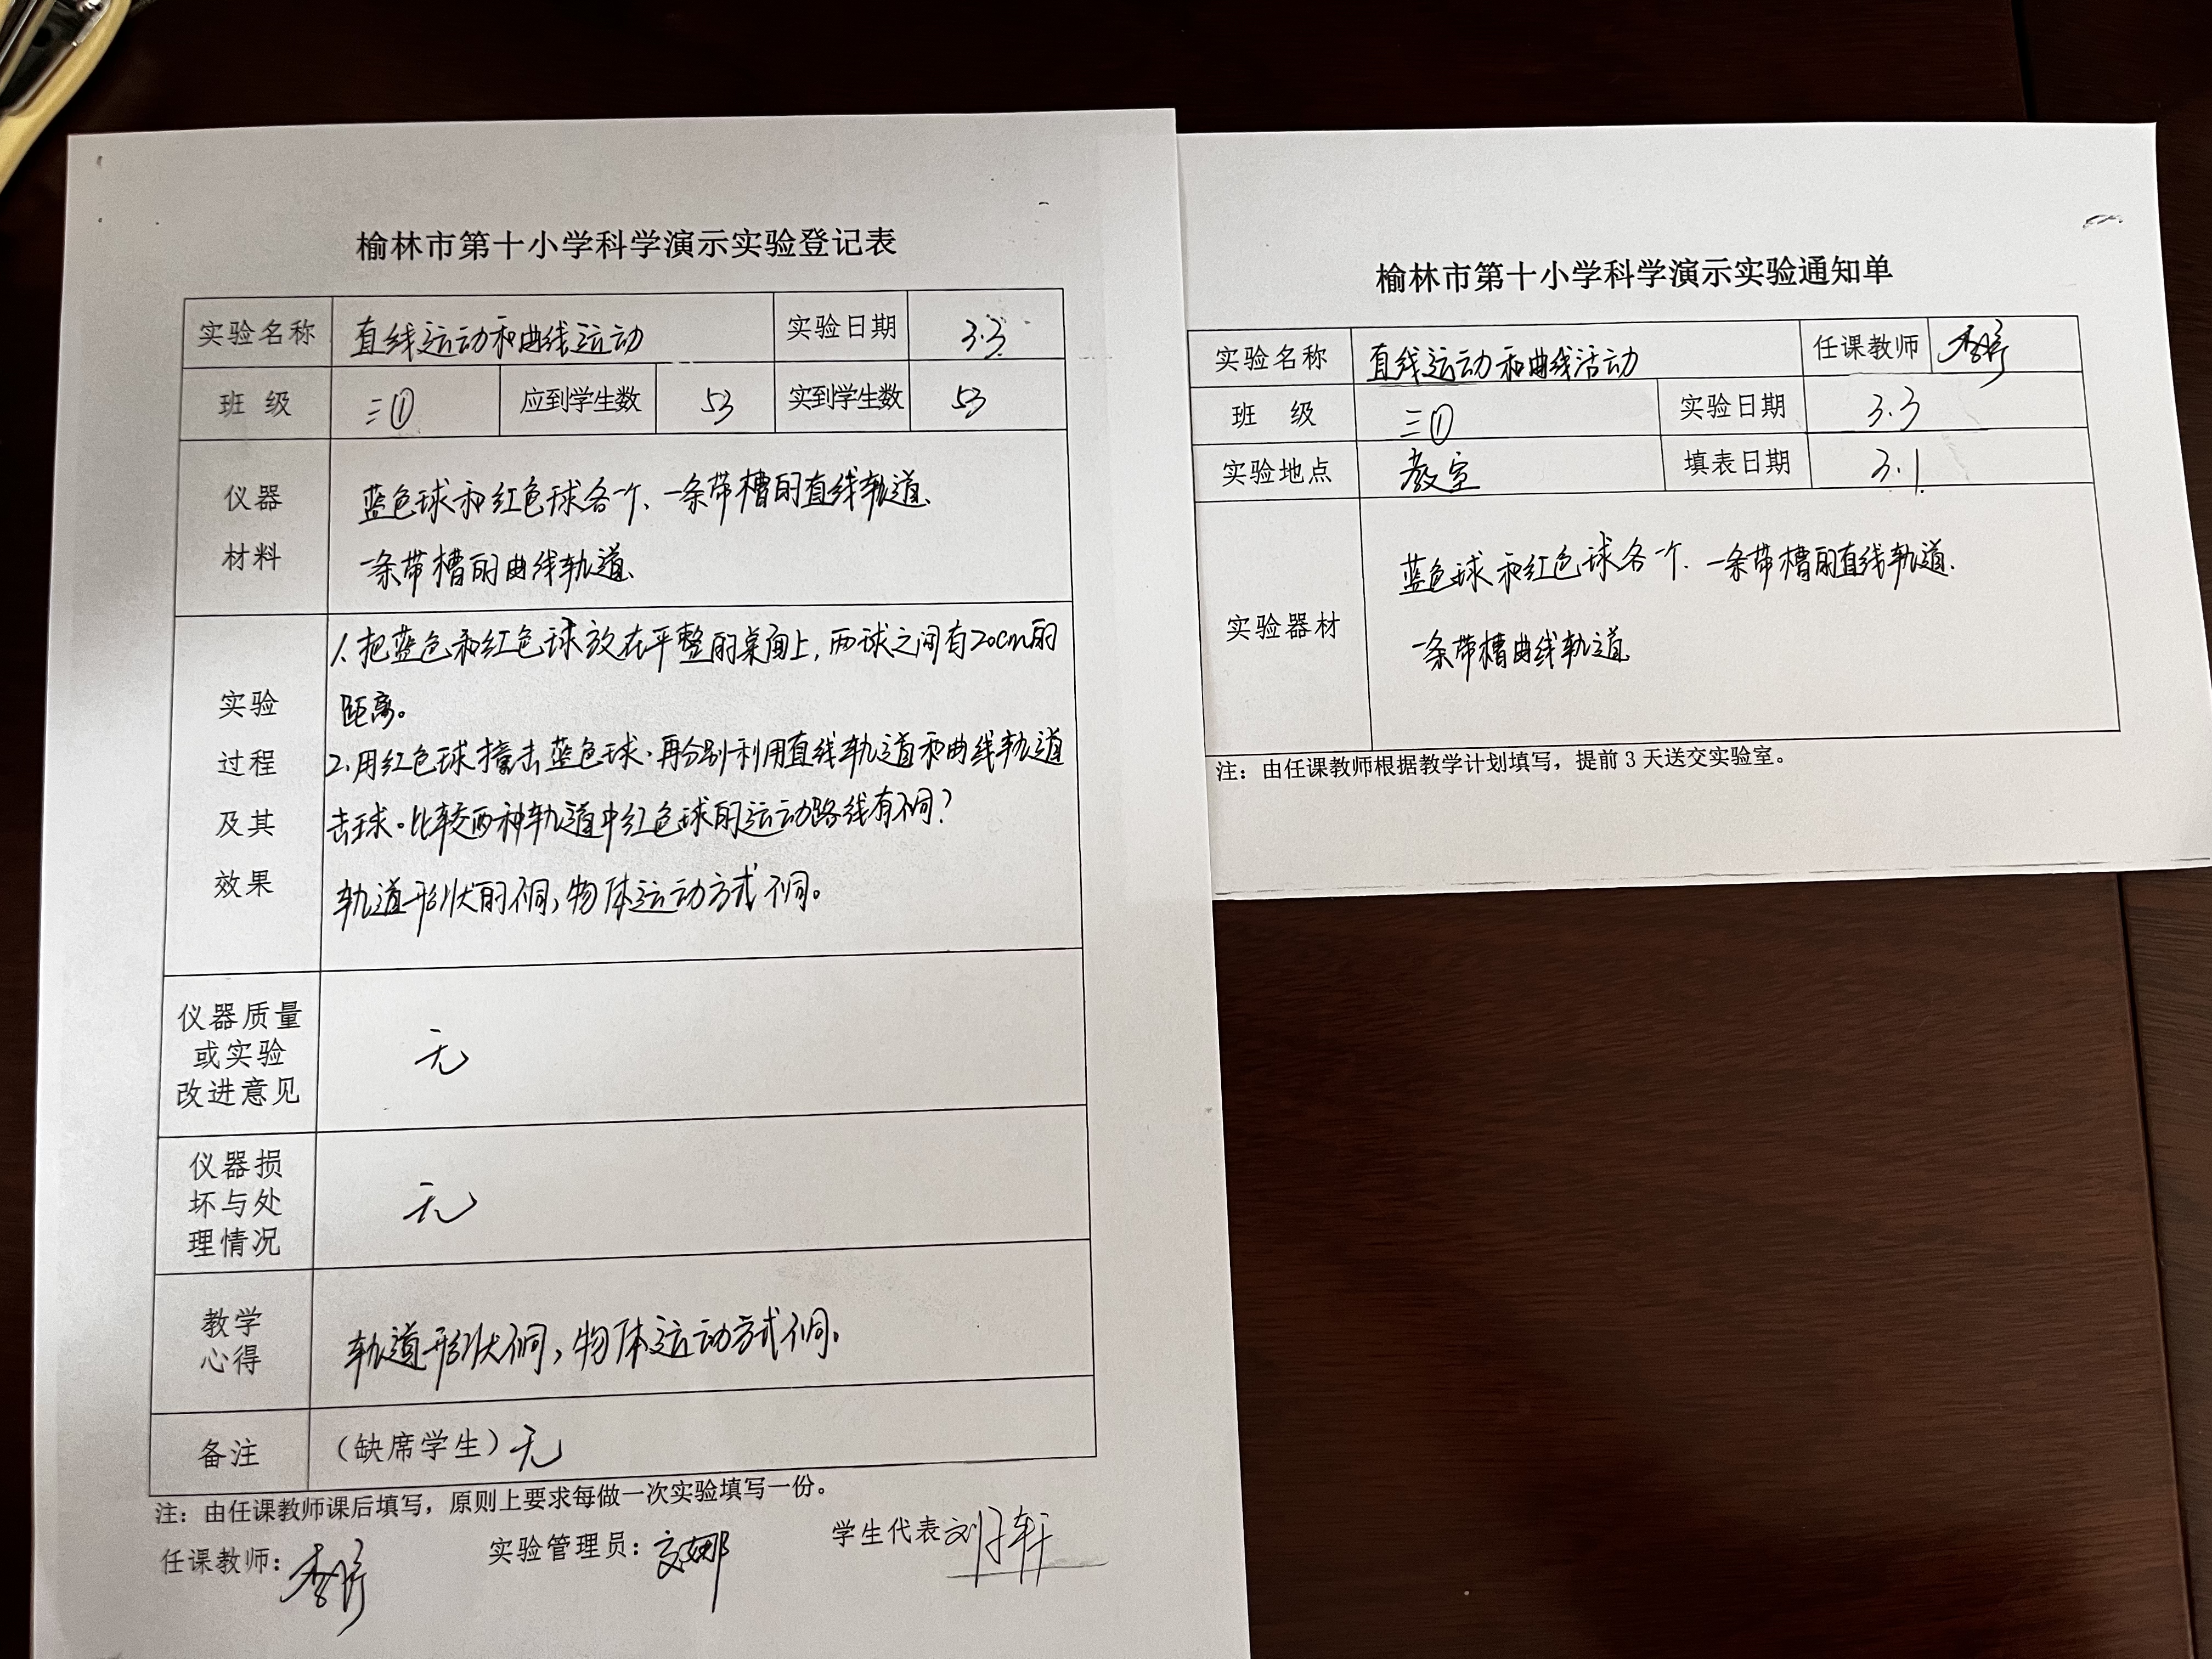 榆林市第十小学科学演示实验登记表
实验名称 直线运动和曲线运动 实验日期 3.3
班 级 三① 应到学生数 53 实到学生数 53
仪器
材料
蓝色球和红色球各一个、一条带槽的直线轨道、
一条带槽的曲线轨道、
实验
过程
及其
效果
1、把蓝色和红色球放在平整的桌面上，两球之间有20cm的
距离。
2、用红色球撞击蓝色球.再分别利用直线轨道和曲线轨道
击球。比较两种轨道中红色球的运动路线有不同？
轨道形状的不同，物体运动方式不同。
仪器质量
或实验
改进意见
无
仪器损
坏与处
理情况
无
教学
心得
轨道形状不同，物体运动方式不同。
备注 （缺席学生）无
注：由任课教师课后填写，原则上要求每做一次实验填写一份。
任课教师： 实验管理员： 学生代表
榆林市第十小学科学演示实验通知单
实验名称 直线运动和曲线活动 任课教师
班 级 三① 实验日期 3.3
实验地点 教室 填表日期 3.1
实验器材
蓝色球和红色球各一个、一条带槽的直线轨道.
一条带槽曲线轨道
注：由任课教师根据教学计划填写，提前 3 天送交实验室。